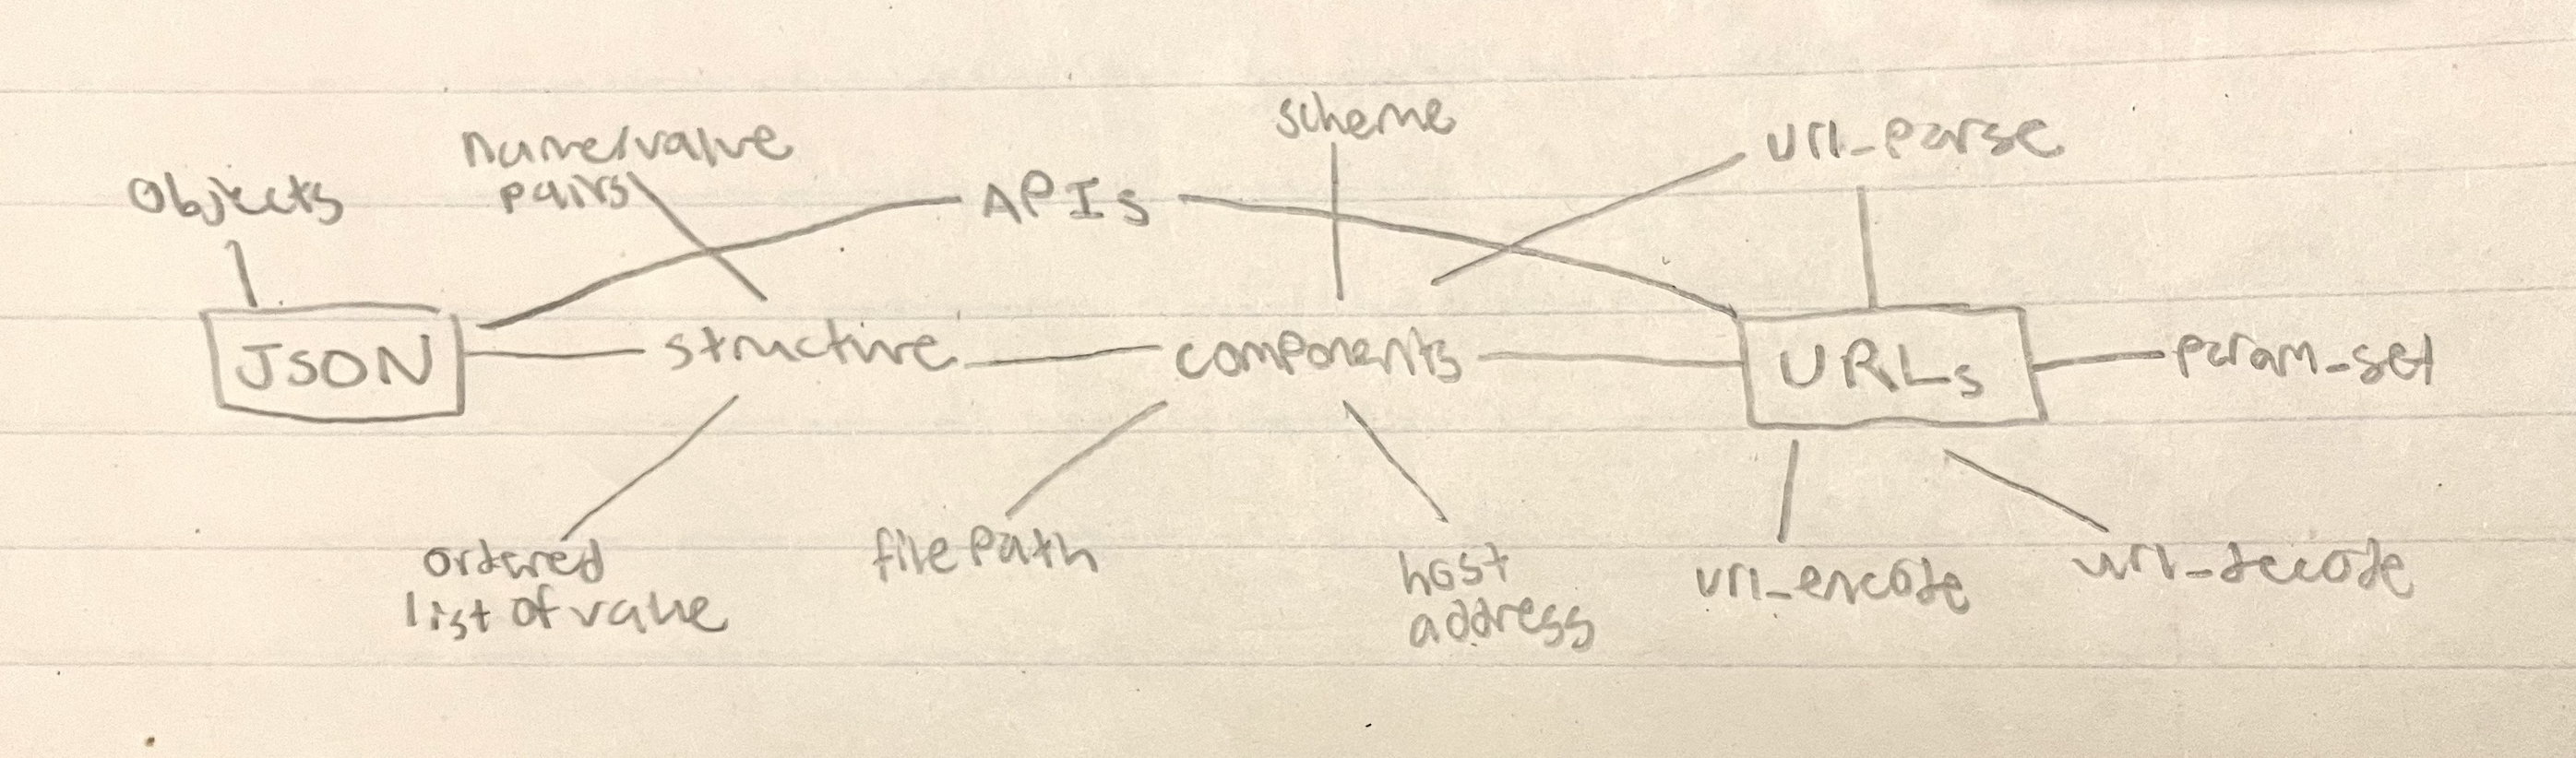 scheme
name/value
pairs
url_parse
Objects
APIs
JSON
structure
components
URLs
param_set
ordered
list of value
file path
host
address
url_encode
url_decode